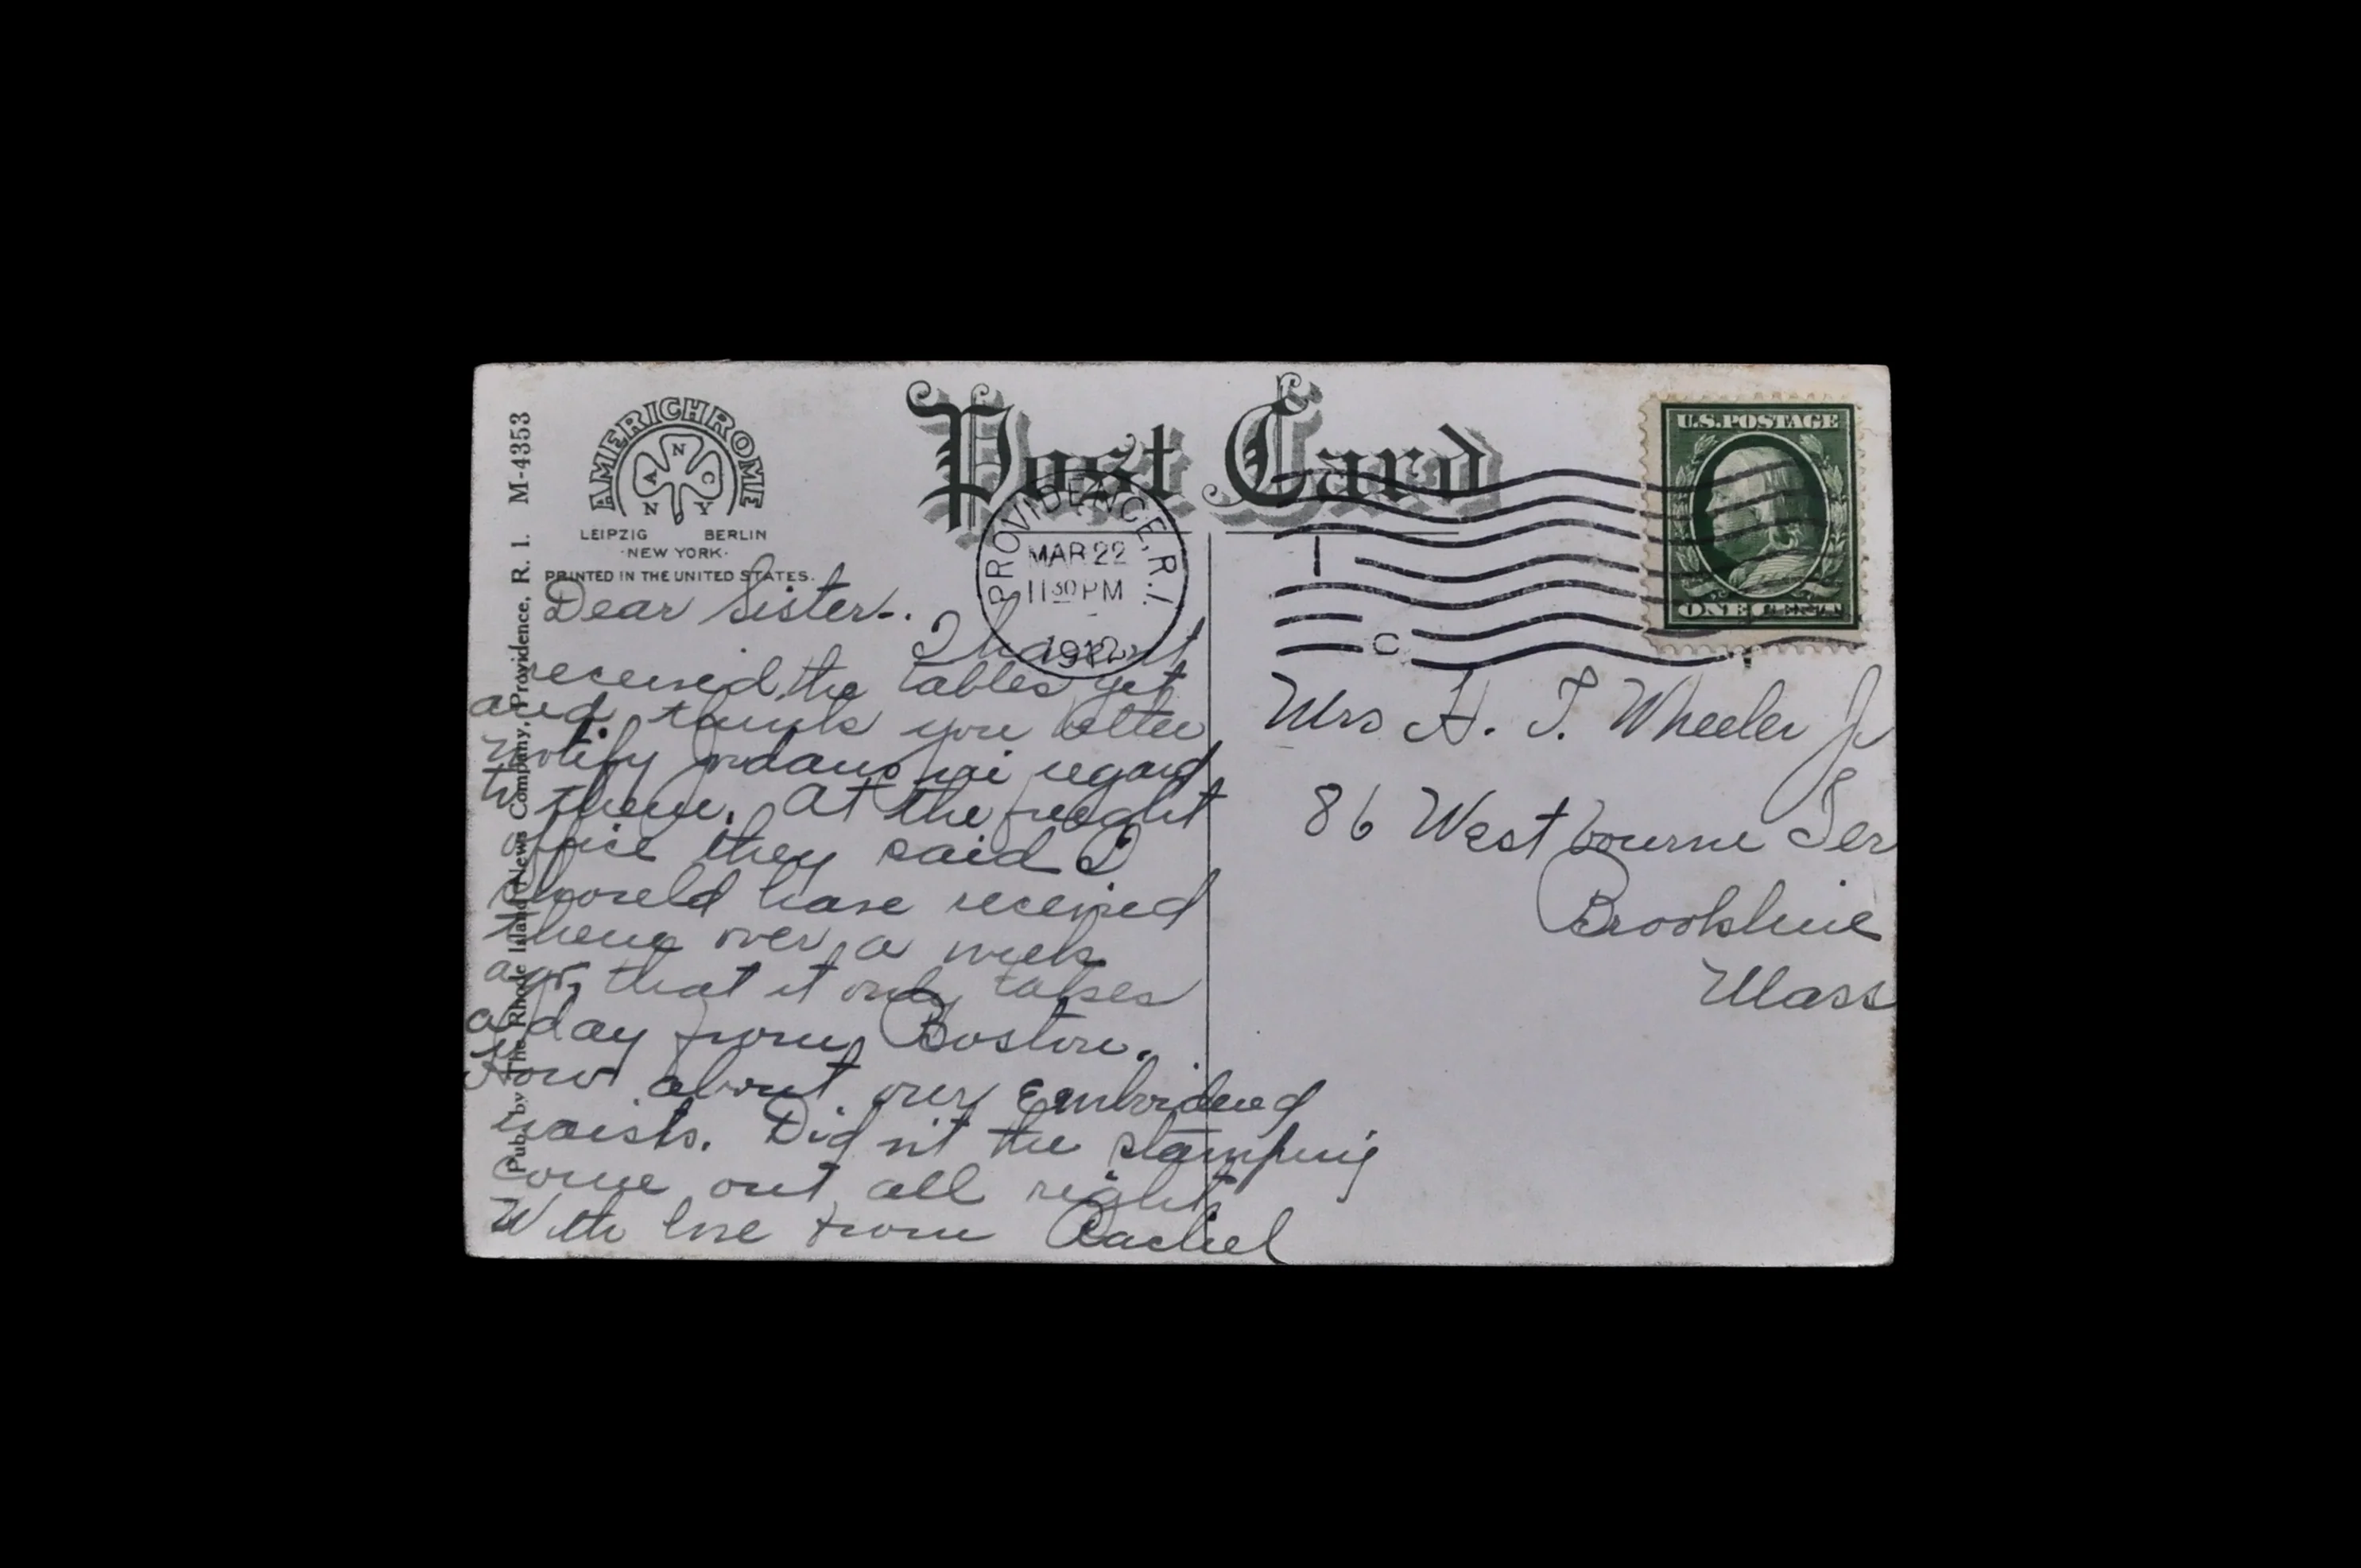 Post Card
AMERICHROME
ANNCY
LEIPZIG BERLIN
·NEW YORK·
PRINTED IN THE UNITED STATES.
Pub. by The Rhode Island News Company, Providence, R. I. M-4353
PROVIDENCE, R.I.
MAR 22
11 30 PM
1912
1
C
U.S. POSTAGE
ONE CENT
Dear Sister-.
I havent
received the tables yet
and think you better
notify Jordans in regard
to them. At the freight
office they said I
should have received
them over a week
ago, that it only takes
a day from Boston.
How about our Embroidered
waists. Did n't the stamping
come out all right.
With love from Rachel
Mrs H. T. Wheeler Jr
86 Westbourne Ter
Brookline
Mass